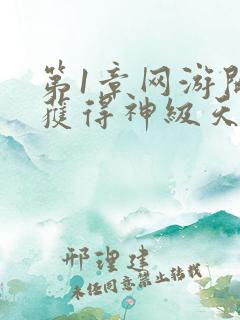 第1章网游
獲得神級天
邢理建
未经同意禁止转载